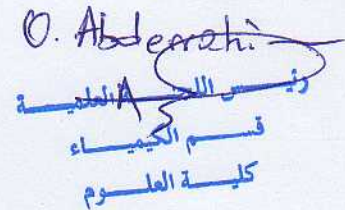 O. Abderrahi
رئيس اللجنة العلمية
قسم الكيمياء
كلية العلوم